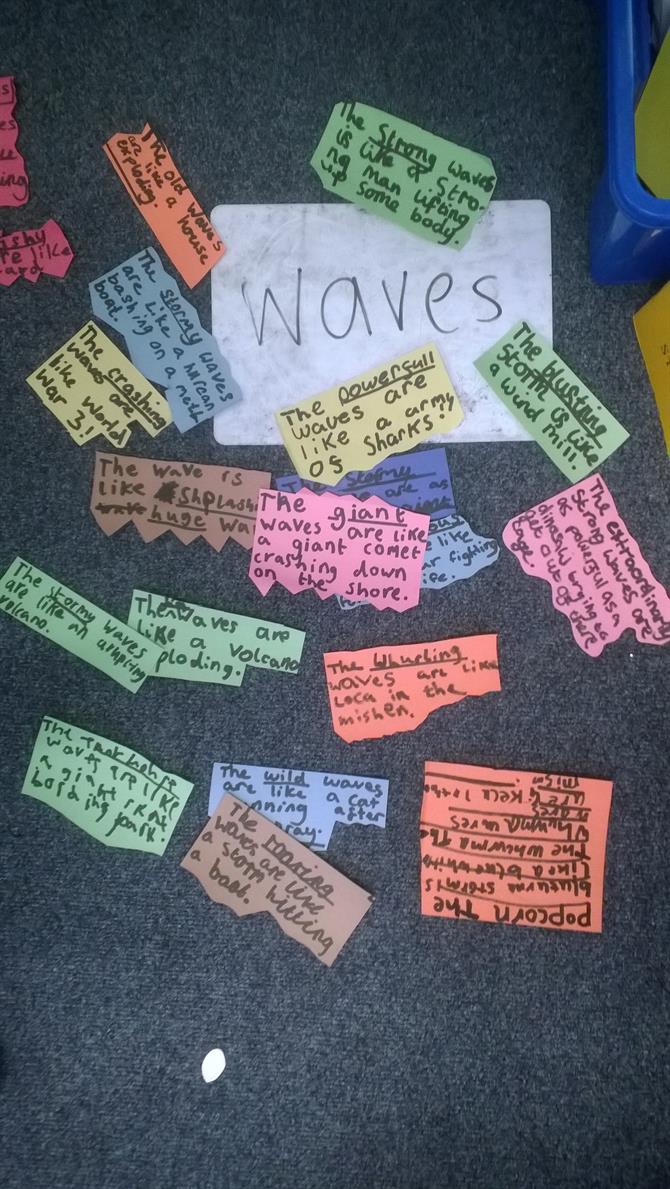 The Strong waves
is like a Stro-
ng man lifting
up some body.
The old waves
are like a house
exploding.
Waves
The stormy waves
are like a
bashing on a
boat.
The crashing
waves are
like World
War 3!
The powerfull
waves are
like a army
of Sharks!
The blustring
Storm is like
a wind mill.
The wave is
like Shplash
huge wa
The Stormy
are as
The giant
waves are like
a giant comet
crashing down
on the shore.
like
fighting
ife.
The extroordinary
Strong waves are
as powerful as a
trying to
get out of there
cage.
The stormy waves
are like an
volcano.
The waves are
like a volcano
ploding.
The Whurling
waves are like
Loca in the
mishen.
The
waves are like
a giant skate
bording park.
The wild waves
are like a cat
nning after
pray.
The roaring
waves are like
a storm hitting
a boat.
popcorn The
storm is
like a
The whurma The
waves
are